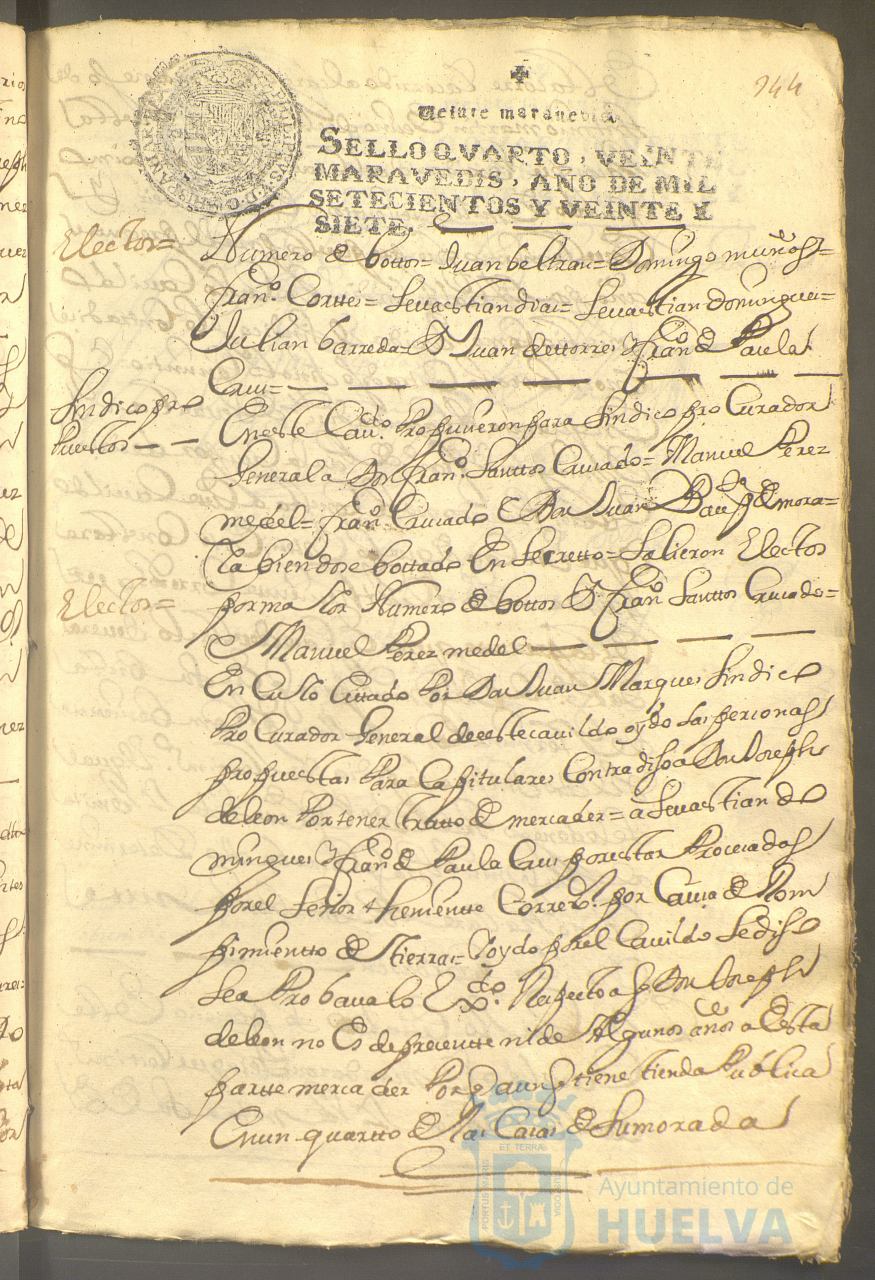 944
Veinte maravedis
SELLO QVARTO, VEINTE
MARAVEDIS, AÑO DE MIL
SETECIENTOS Y VEINTE Y
SIETE.
Electos=
Numero de bottos= Juan beltran= Domingo muños=
Fran.co Corttes= Sevastian dias= Sevastian domingues=
Julian barreda= D Juan de ttorres y Fran.co de Paula
Crus=
Sindico pro
puestos
En este Cav.do Propusieron para Sindico pro Curador
General a Don Fran.co Santtos Crusado= Manuel Perez
medel= Fran.co Crusado E Don Juan Baup.ta de mora=
E abiendose bottado En secretto= Salieron Electos
Electos=
por maior Numero de bottos D Fran.co Santtos Crusado=
E Manuel Perez medel
En Cuio Esttado Por Don Juan Marques Sindico
Pro Curador General de este cavildo oydo las personas
propuestas Para Capitulares Contradiso a Don Joseph
de leon Por tener tratto de mercader= a Sevastian do
mingues y Fran.co de Paula Crus por estar Procesados
por el Señor theniente Correx.or por Causa de Rom
pimientto de tierras= Y oydo por el Cavildo Se diso
Se aProbava lo Ex.do Respecto a q Don Joseph
de leon no Es de presentte ni de Algunos años a Esta
partte mercader Por q aunq tiene tienda Publica
En un quartto de las Casas de su morada
ET TERRA
PORTUS MARIS
CUSTODIA
Ayuntamiento de
HUELVA